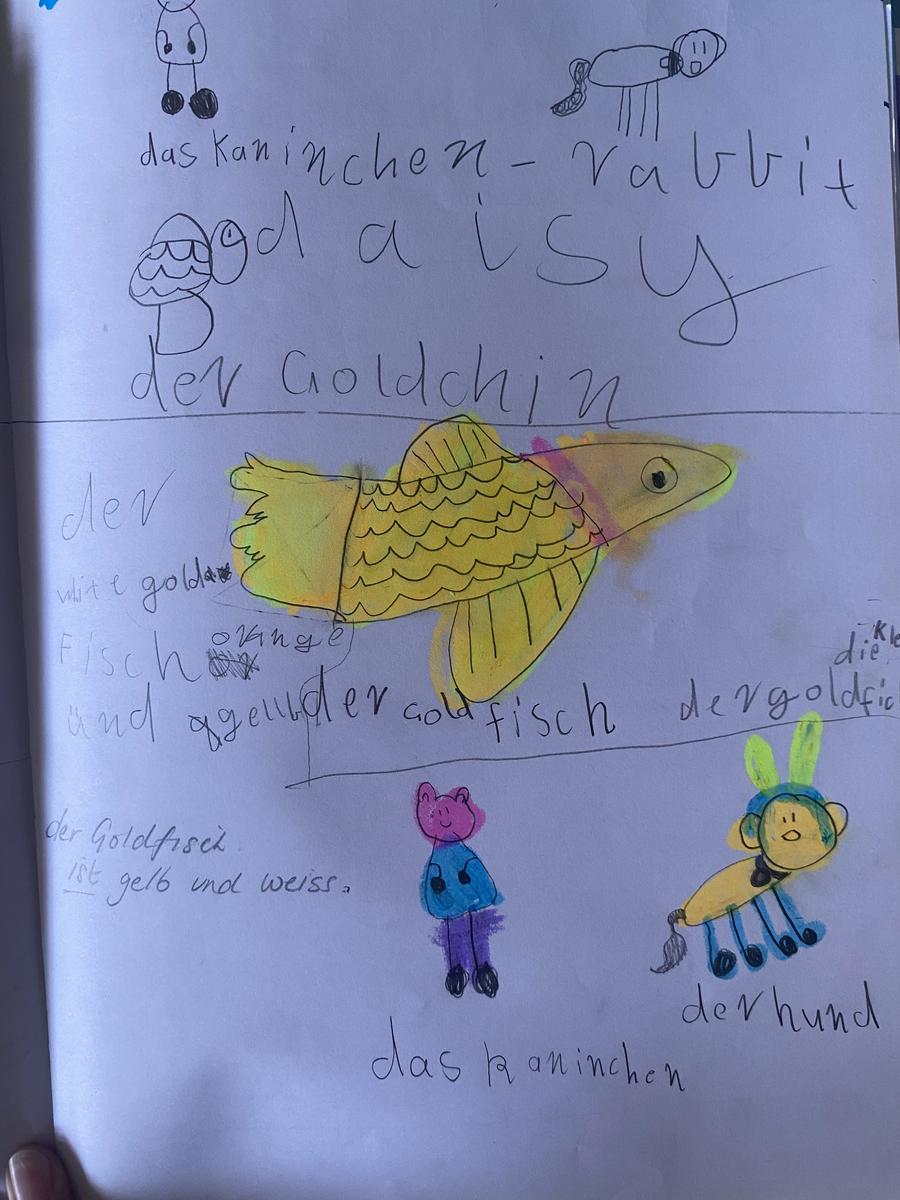 das Kaninchen - rabbit
daisy
der Goldchin
der
white gold
Fisch orange
und ggellb
der Gold fisch
die
der goldfi
der Goldfisch
ist gelb und weiss.
das kaninchen
der hund